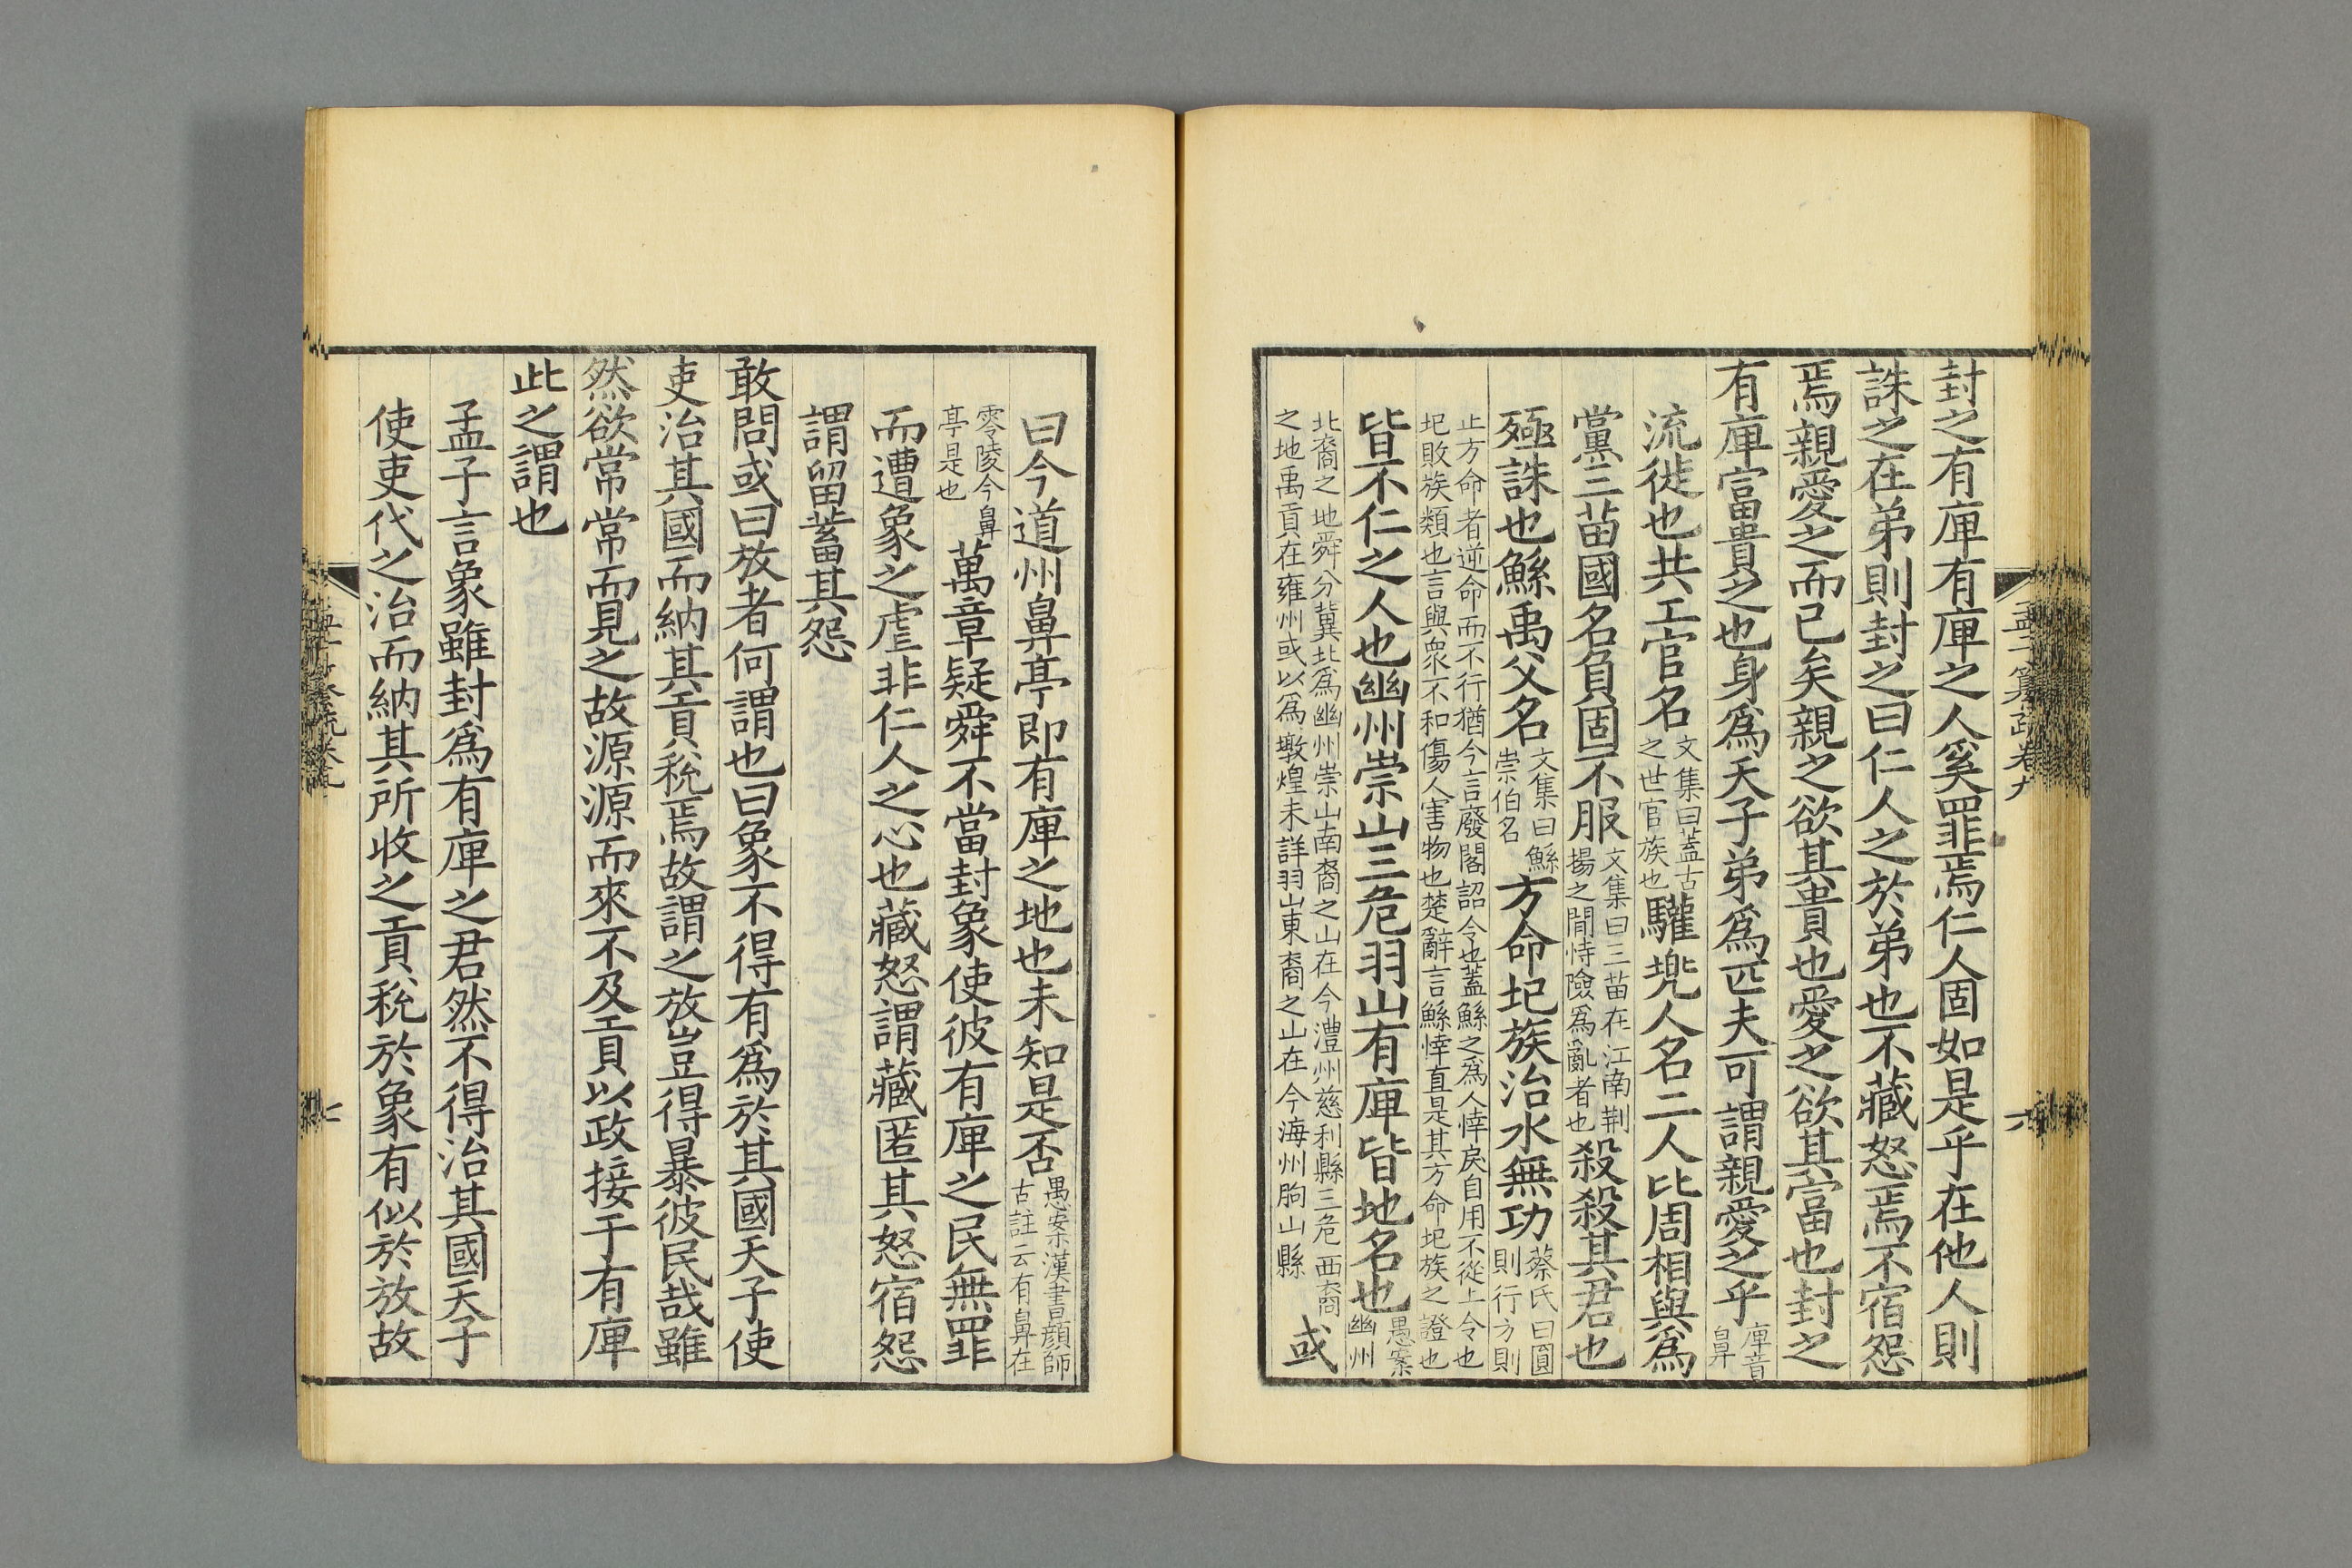 封之有庳有庳之人奚罪焉仁人固如是乎在他人則
誅之在弟則封之曰仁人之於弟也不藏怒焉不宿怨
焉親愛之而已矣親之欲其貴也愛之欲其富也封之
有庳富貴之也身爲天子弟爲匹夫可謂親愛之乎庳音鼻
流徙也共工官名文集曰蓋古之世官族也驩兜人名二人比周相與爲
黨三苗國名負固不服文集曰三苗在江南荆揚之間恃險爲亂者也殺殺其君也
殛誅也鯀禹父名文集曰鯀崇伯名方命圮族治水無功蔡氏曰圓則行方則
止方命者逆命而不行猶今言廢閣詔令也蓋鯀之爲人悻戾自用不從上令也
圮敗族類也言與衆不和傷人害物也楚辭言鯀悻直是其方命圮族之證也
皆不仁之人也幽州崇山三危羽山有庳皆地名也愚案幽州
北裔之地舜分冀北爲幽州崇山南裔之山在今澧州慈利縣三危西裔
之地禹貢在雍州或以爲墩煌未詳羽山東裔之山在今海州朐山縣
或
孟子纂疏卷九
六
曰今道州鼻亭即有庳之地也未知是否愚案漢書顔師古註云有鼻在
零陵今鼻亭是也萬章疑舜不當封象使彼有庳之民無罪
而遭象之虐非仁人之心也藏怒謂藏匿其怒宿怨
謂留蓄其怨
敢問或曰放者何謂也曰象不得有爲於其國天子使
吏治其國而納其貢稅焉故謂之放豈得暴彼民哉雖
然欲常常而見之故源源而來不及貢以政接于有庳
此之謂也
孟子言象雖封爲有庳之君然不得治其國天子
使吏代之治而納其所收之貢稅於象有似於放故
七